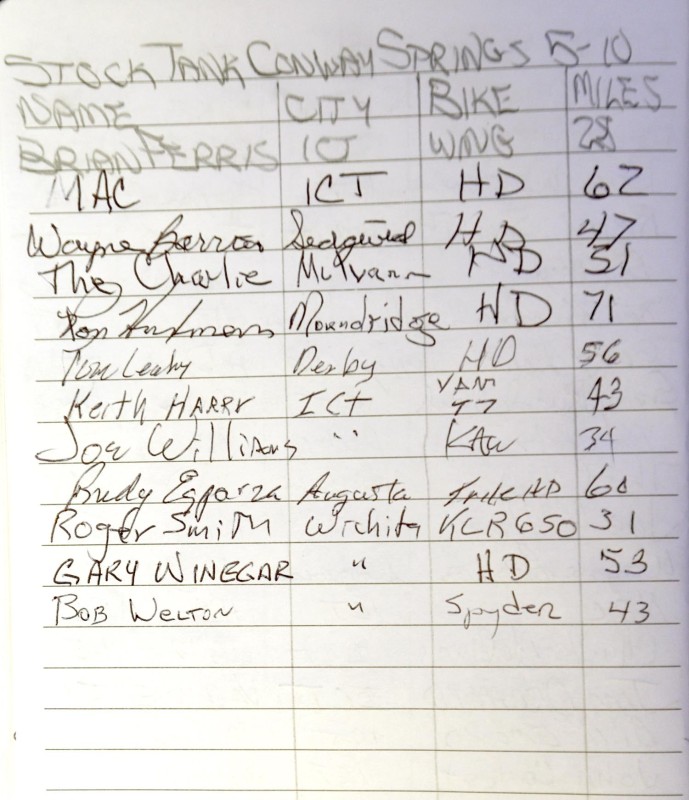 STOCK TANK CONWAY SPRINGS 5-10
NAME CITY BIKE MILES
BRIAN FERRIS ICT WNG 28
MAC ICT HD 62
Wayne Sedgwick HD 47
The Charlie Mulvann HD 51
Ron Moundridge HD 71
Tom Leahy Derby HD 56
Keith HARRY ICT VAN 43
Joe Williams " KAW 34
Rudy Esparza Augusta Trike HD 60
Roger Smith Wichita KLR650 31
GARY WINEGAR " HD 53
BOB WELTON " Spyder 43